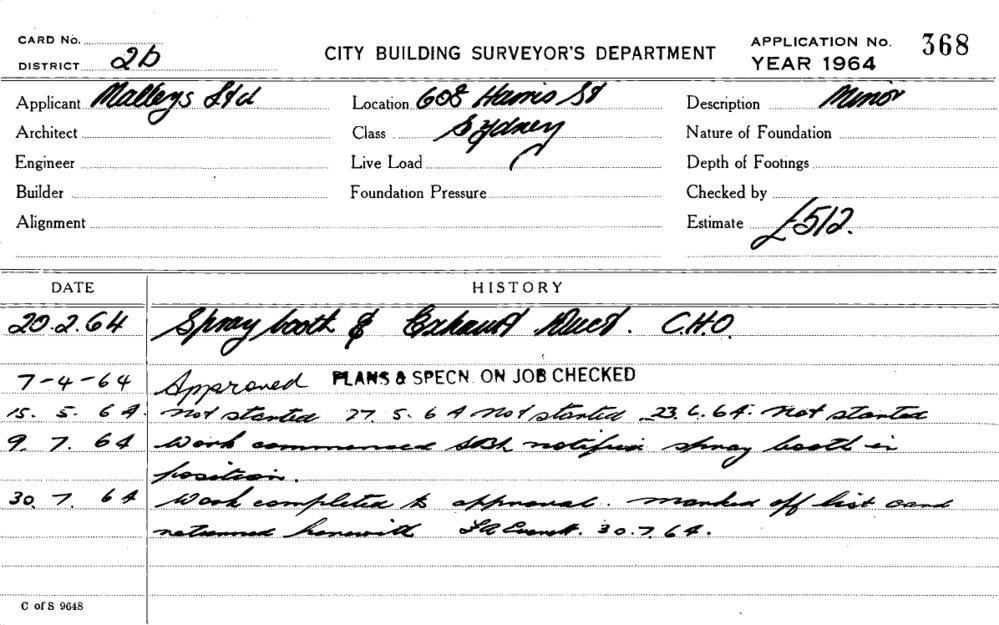 CARD No.
DISTRICT 2b
CITY BUILDING SURVEYOR'S DEPARTMENT
APPLICATION No. 368
YEAR 1964
Applicant Malleys Ltd
Location 608 Harris St
Description Minor
Architect
Class Sydney
Nature of Foundation
Engineer
Live Load
Depth of Footings
Builder
Foundation Pressure
Checked by
Alignment
Estimate £512.
DATE
HISTORY
20.2.64 Spray booth & Exhaust Duct. C.H.O.
7-4-64 Approved PLANS & SPECN. ON JOB CHECKED
15. 5. 64. not started 27. 5. 64 not started 23.6.64. not started
9. 7. 64 Work commenced spray booth in
position.
30. 7. 64 Work completed to approval. marked off list card
returned herewith 30.7.64.
C of S 9648